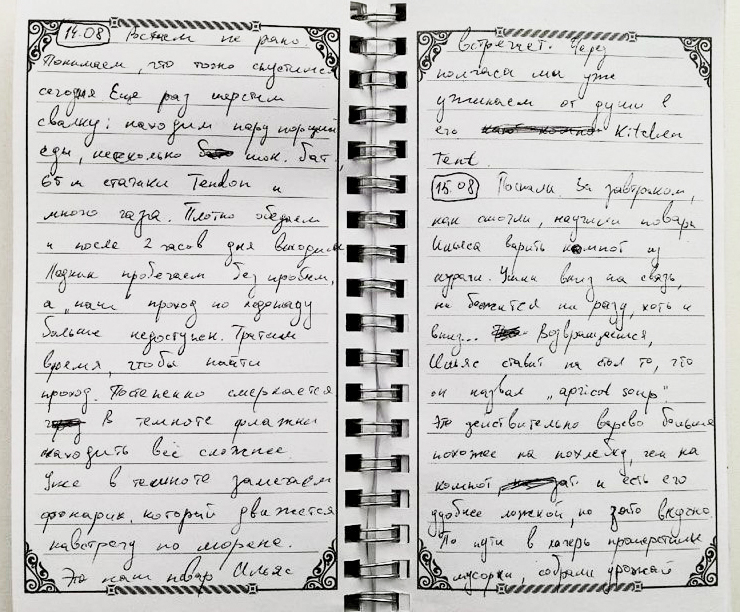 14.08 Встаем не рано.
Понимаем, что точно спустимся
сегодня Еще раз шерстим
свалку: находим пару порций
еды, несколько шок. бат.,
65 м статики Tendon и
много газа. Плотно обедаем
и после 2 часов дня выходим
Ледник пробегаем без проблем,
а "наш" проход по ледопаду
больше недоступен. Тратим
время, чтобы найти
проход. Постепенно смеркается
В темноте флажки
находить всё сложнее.
Уже в темноте замечаем
фонарик, который движется
навстречу по морене.
Это наш повар Ильяс
встречает. Через
полчаса мы уже
ужинаем от души в
его Kitchen
Tent.
15.08 Поспали. За завтраком,
как смогли, научили повара
Ильяса варить компот из
кураги. Ушли вниз на связь,
не ни разу, хоть и
вниз... Возвращаемся,
Ильяс ставит на стол то, что
он назвал "apricot soup".
Это действительно варево больше
похоже на похлебку, чем на
компот, и есть его
удобнее ложкой, но зато вкусно.
По пути в лагерь прошерстили
мусорки, собрали урожай